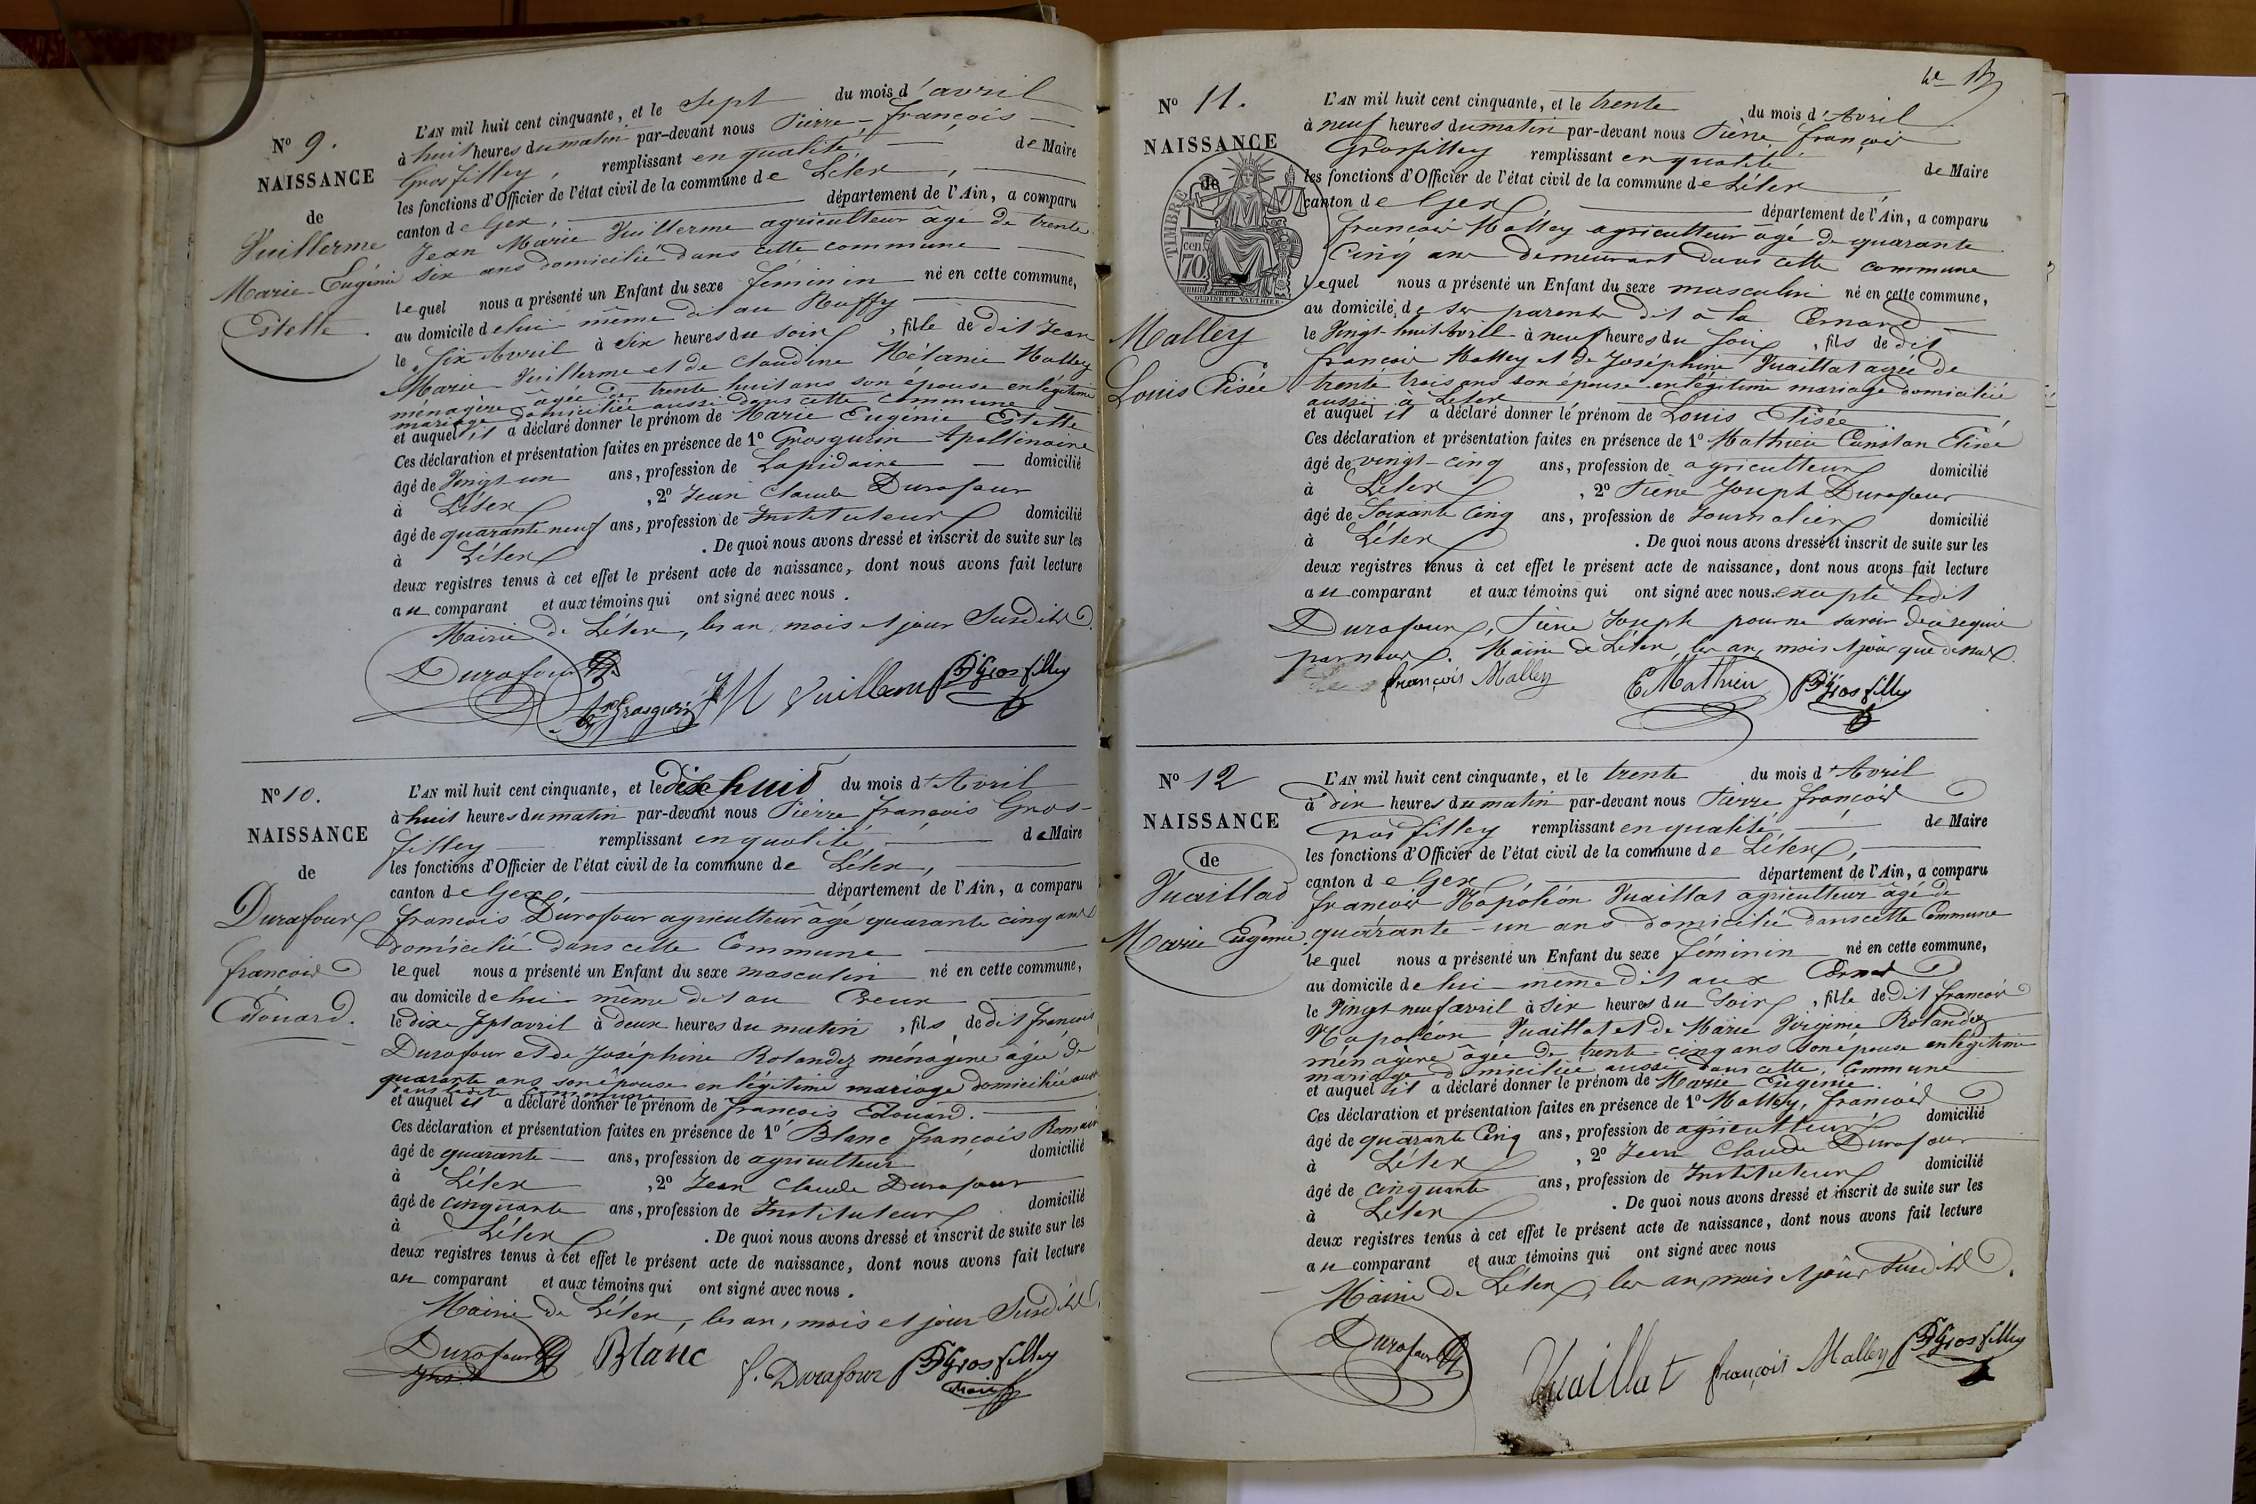 N° 9.
NAISSANCE
de
Vuillerme
Marie Eugénie
Estelle.
L'AN mil huit cent cinquante, et le Sept du mois d'avril
à huit heures du matin par-devant nous Pierre-François
Grosfilley, remplissant en qualité de Maire
les fonctions d'Officier de l'état civil de la commune de Lélex,
canton de Gex, département de l'Ain, a comparu
Jean Marie Vuillerme agriculteur âgé de trente
six ans domicilié dans cette commune
lequel nous a présenté un Enfant du sexe féminin né en cette commune,
au domicile de lui même dit au
le Six Avril à Six heures du soir, fille de dit Jean
Marie Vuillerme et de Claudine Mélanie Malley
ménagère agée de trente huit ans son épouse en légitime
mariage domiciliée aussi dans cette commune
et auquel il a déclaré donner le prénom de Marie Eugénie Estelle
Ces déclaration et présentation faites en présence de 1° Grosgurin Apollinaire
âgé de Vingt un ans, profession de Lapidaire domicilié
à Lélex, 2° Jean Claude Durafour
âgé de quarante neuf ans, profession de Instituteur domicilié
à Lélex. De quoi nous avons dressé et inscrit de suite sur les
deux registres tenus à cet effet le présent acte de naissance, dont nous avons fait lecture
au comparant et aux témoins qui ont signé avec nous.
Mairie de Lélex, les an, mois et jour Susdits.
Durafour Grosgurin JM Vuillerme Pf Grosfilley
N° 10.
NAISSANCE
de
Durafour
François
Edouard.
L'AN mil huit cent cinquante, et le dix huit du mois d'Avril
à huit heures du matin par-devant nous Pierre François Gros-
filley remplissant en qualité de Maire
les fonctions d'Officier de l'état civil de la commune de Lélex,
canton de Gex, département de l'Ain, a comparu
François Durafour agriculteur âgé quarante cinq ans
domicilié dans cette Commune
lequel nous a présenté un Enfant du sexe masculin né en cette commune,
au domicile de lui-même dit au Creux
le dixe Sept avril à deux heures du matin, fils de dit François
Durafour et de Joséphine Rolandez ménagère agée de
quarante ans son épouse en légitime mariage domiciliée aussi
dans cette commune
et auquel il a déclaré donner le prénom de François Edouard.
Ces déclaration et présentation faites en présence de 1° Blanc François Romain
âgé de quarante ans, profession de agriculteur domicilié
à Lélex, 2° Jean Claude Durafour
âgé de cinquante ans, profession de Instituteur domicilié
à Lélex. De quoi nous avons dressé et inscrit de suite sur les
deux registres tenus à cet effet le présent acte de naissance, dont nous avons fait lecture
au comparant et aux témoins qui ont signé avec nous.
Mairie de Lélex, les an, mois et jour Susdits.
Durafour Blanc f. Durafour Pf Grosfilley
maire
N° 11.
NAISSANCE
de
TIMBRE
cen.
70
OUDINE ET VAUTHIER
Malley
Louis Elisée
L'AN mil huit cent cinquante, et le trente du mois d'Avril
à neuf heures du matin par-devant nous Pierre François
Grosfilley remplissant en qualité de Maire
les fonctions d'Officier de l'état civil de la commune de Lélex
canton de Gex département de l'Ain, a comparu
François Malley agriculteur âgé de quarante
Cinq ans demeurant dans cette commune
lequel nous a présenté un Enfant du sexe masculin né en cette commune,
au domicile de ses parents dit à la
le Vingt huit Avril à neuf heures du soir, fils de dit
François Malley et de Joséphine Vuaillat agée de
trente trois ans son épouse en légitime mariage domiciliée
aussi à Lélex
et auquel il a déclaré donner le prénom de Louis Elisée
Ces déclaration et présentation faites en présence de 1° Mathieu Constan Elisée
âgé de vingt-cinq ans, profession de agriculteur domicilié
à Lélex, 2° Pierre Joseph Durafour
âgé de Soixante Cinq ans, profession de Journalier domicilié
à Lélex. De quoi nous avons dressé et inscrit de suite sur les
deux registres tenus à cet effet le présent acte de naissance, dont nous avons fait lecture
au comparant et aux témoins qui ont signé avec nous excepté ledit
Durafour, Pierre Joseph pour ne savoir de ce requis
par nous. Mairie de Lélex, les an, mois et jour que dessus.
françois Malley E Mathieu Pf Grosfilley
N° 12
NAISSANCE
de
Vuaillad
Marie Eugénie
L'AN mil huit cent cinquante, et le trente du mois d'Avril
à dix heures du matin par-devant nous Pierre François
Grosfilley remplissant en qualité de Maire
les fonctions d'Officier de l'état civil de la commune de Lélex,
canton de Gex département de l'Ain, a comparu
François Napoléon Vuaillat agriculteur âgé de
quarante-un ans domicilié dans cette Commune
lequel nous a présenté un Enfant du sexe féminin né en cette commune,
au domicile de lui-même dit aux
le Vingt neuf avril à Six heures du Soir, fille de dit François
Napoléon Vuaillat et de Marie Virginie Rolandez
ménagère âgée de trente cinq ans son épouse en légitime
mariage domiciliée aussi dans cette Commune
et auquel il a déclaré donner le prénom de Marie Eugénie.
Ces déclaration et présentation faites en présence de 1° Malley, François
âgé de quarante Cinq ans, profession de agriculteur domicilié
à Lélex, 2° Jean Claude Durafour
âgé de cinquante ans, profession de Instituteur domicilié
à Lélex. De quoi nous avons dressé et inscrit de suite sur les
deux registres tenus à cet effet le présent acte de naissance, dont nous avons fait lecture
au comparant et aux témoins qui ont signé avec nous
Mairie de Lélex, les an, mois et jour Susdits.
Durafour Vuaillat françois Malley Pf Grosfilley